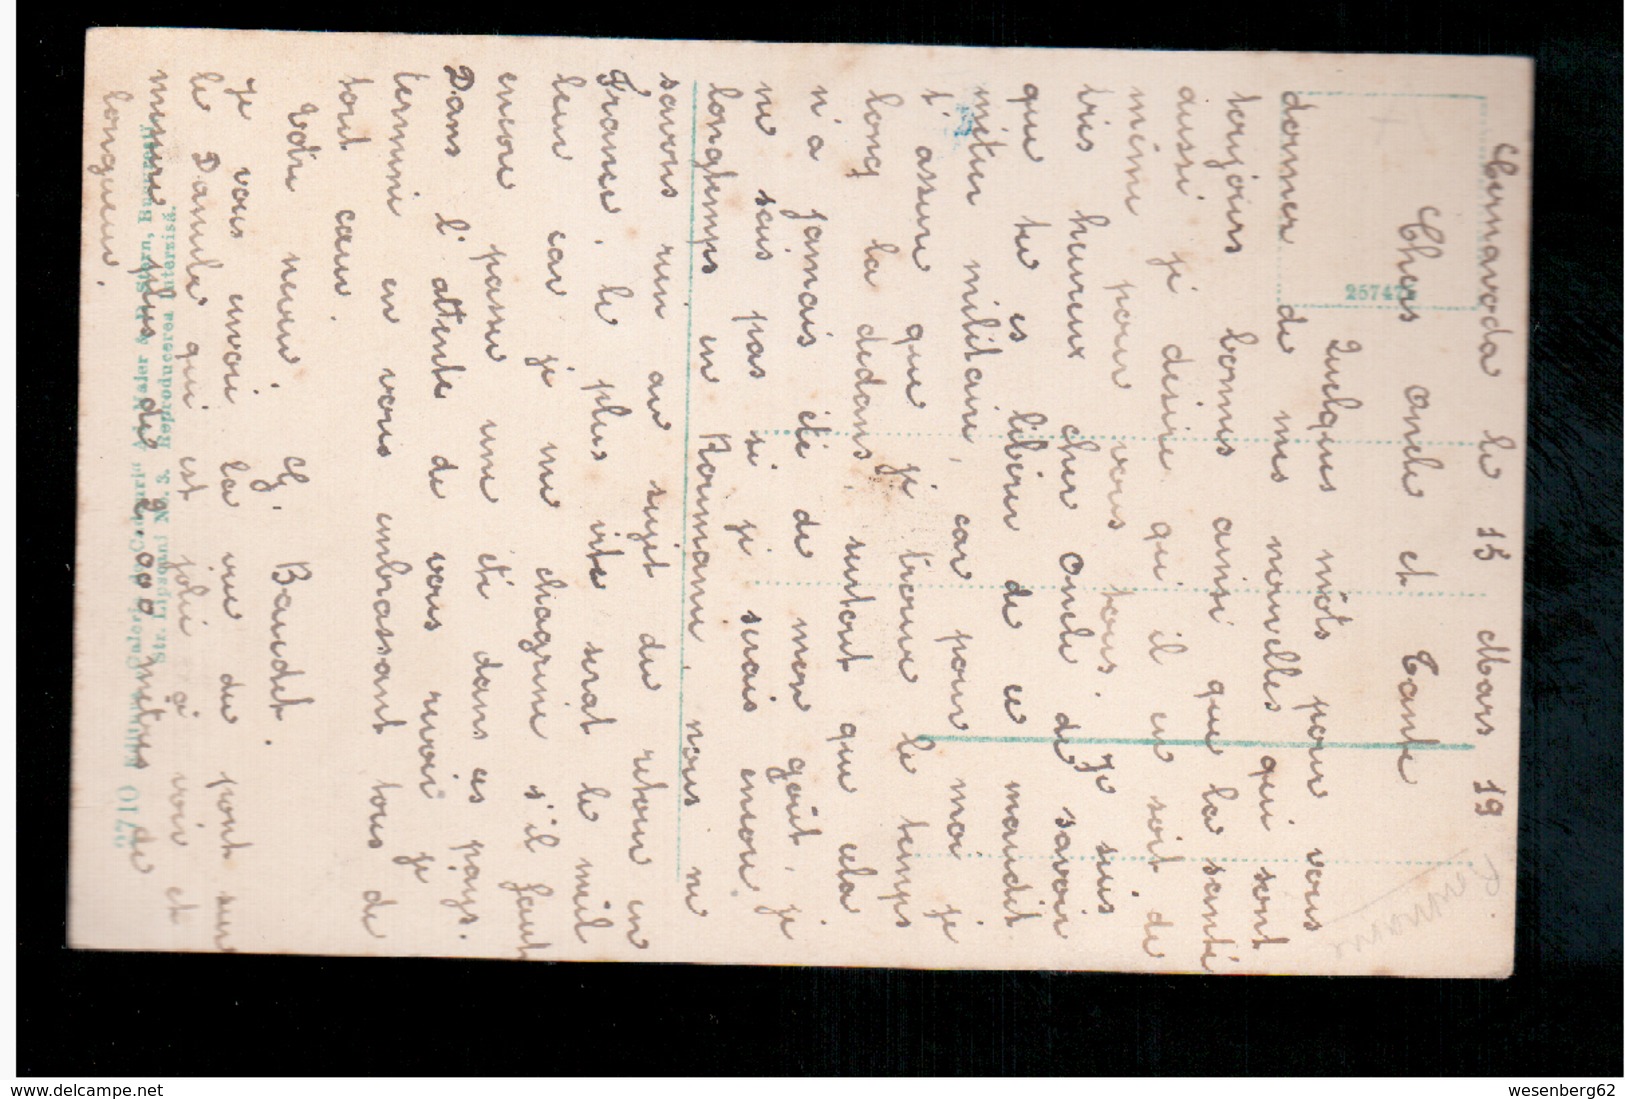 Cernavoda le 15 Mars 19
Chers Oncle et Tante
Quelques môts pour vous
donner de mes nouvelles qui sont
toujours bonnes ainsi que la santé
aussi je désire qu'il en soit de
même pour vous tous. Je suis
très heureux cher Oncle de savoir
que tu es libérer de ce maudit
métier militaire, car pour moi je
t'assure que je trouve le temps
long la dedans, surtout que cela
n'a jamais été de mon goût, je
ne sais pas si je serais encore
longtemps en Roumanie, nous ne
savons rien au sujet du retour en
France, le plus vite serat le mieil
leur car je me chagrine s'il faut
encore passer une été dans ces pays.
Dans l'attente de vous revoir je
termine en vous embrassant tous de
tout cœur.
Votre neveu. G. Baudet.
Je vous envoi la vue du pont sur
le Danube qui est joli à voir et
mesure plus de 2.000 mètres de
longueur.
257472
Roumanie
2710 Editura „Galeria de Cadouri" A. Maier & D. Stern, București
Str. Lipscani No. 3. Reproducerea interzisă.
www.delcampe.net
wesenberg62